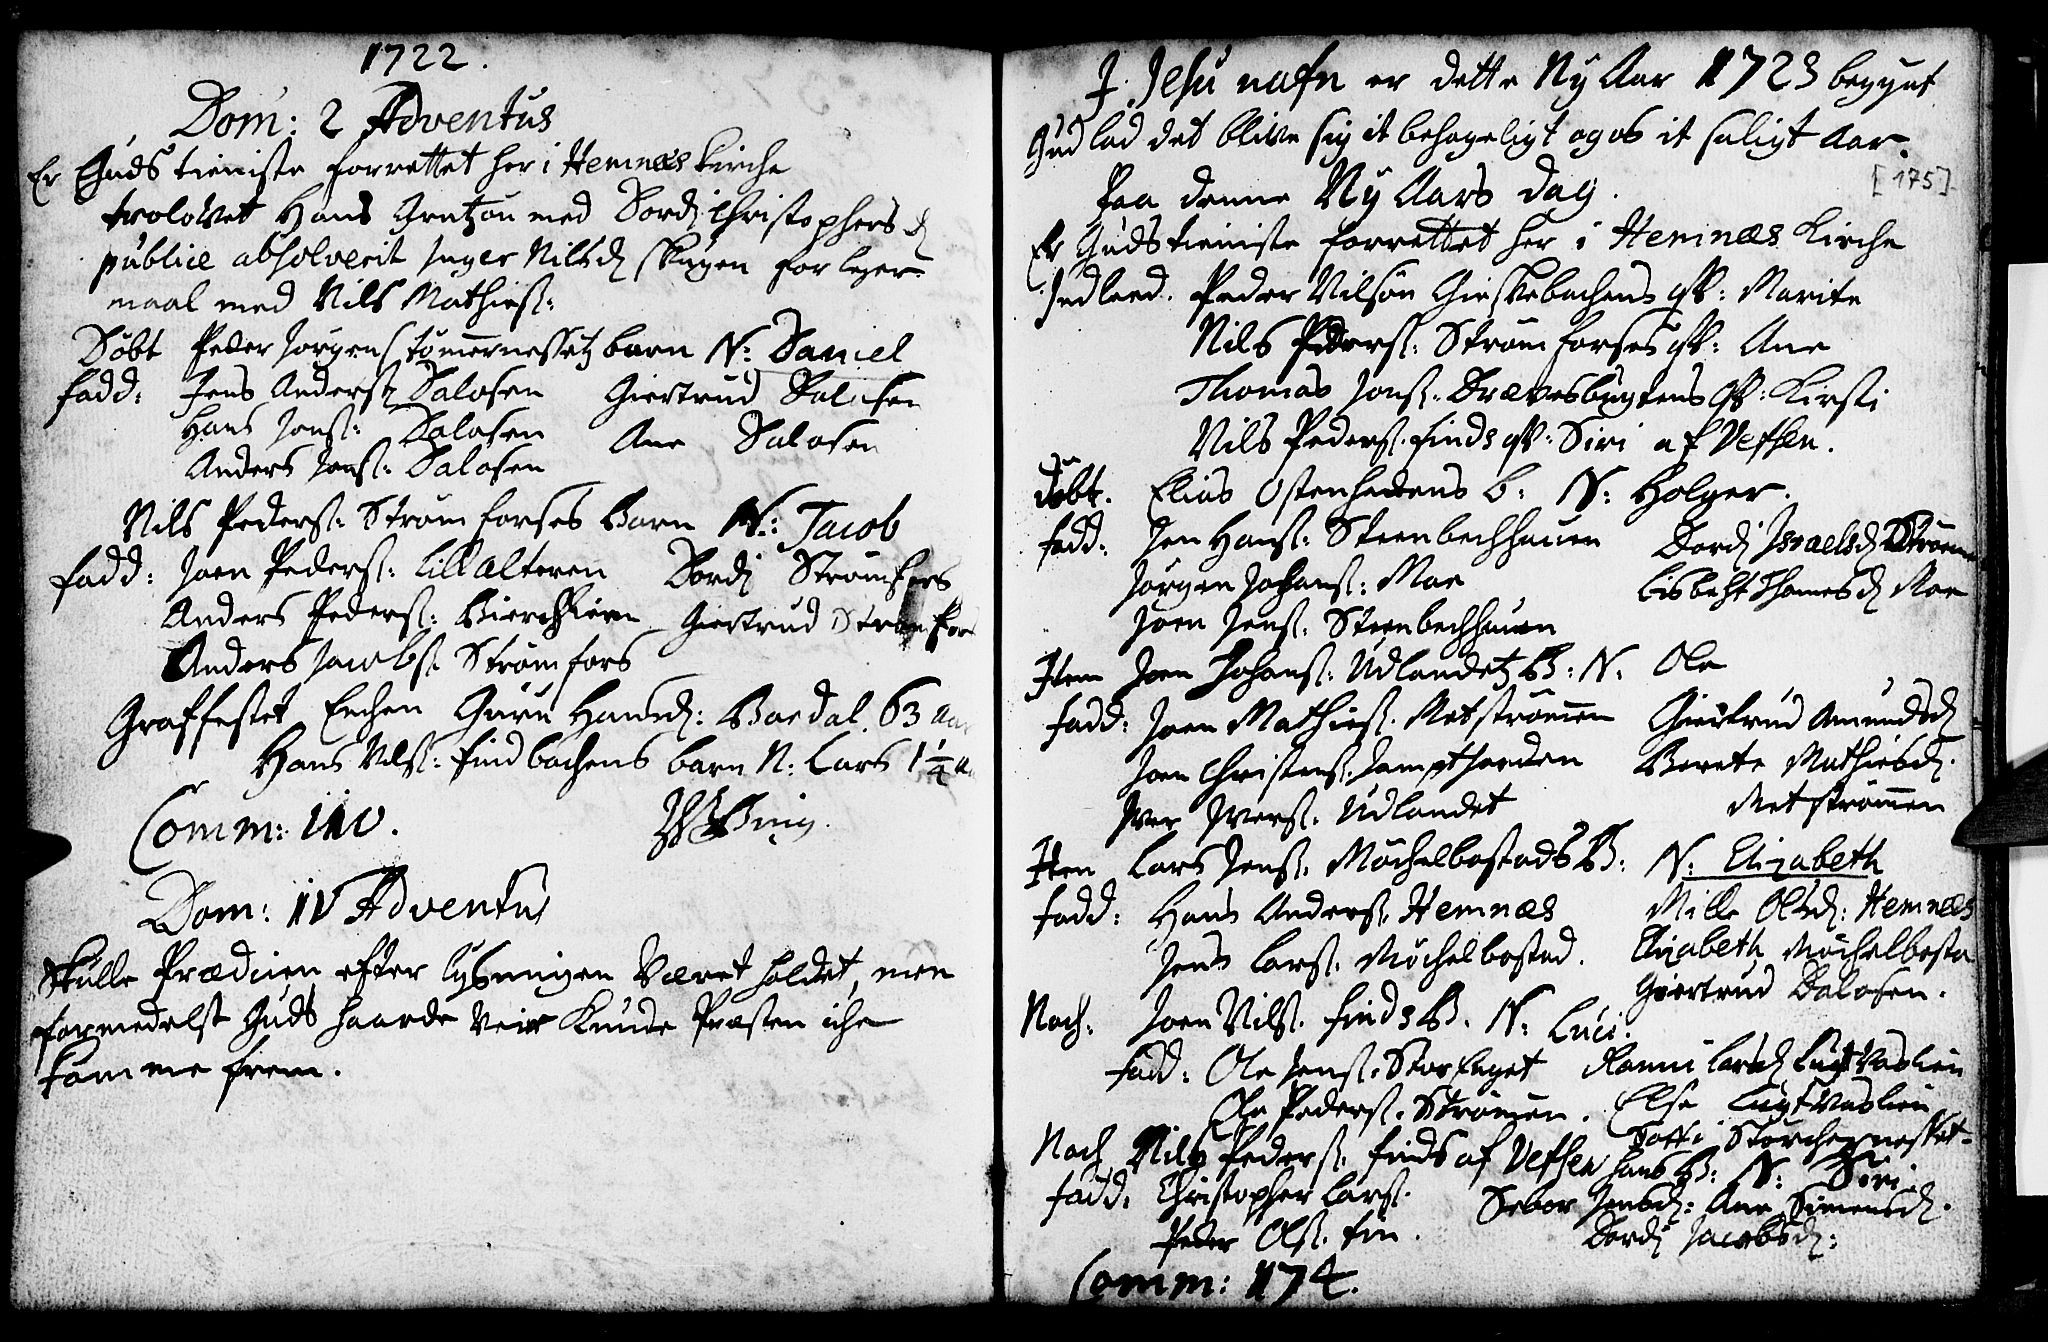 1722.
Dom: 2 Adventus
Er Guds tieniste forrettet her i Hemnæs Kirche
trolovet Hans Grutzou med Dordi Christophersd
publice absolverit Inger Nilsd Skugen for leger-
maal med Nils Mathiess:
Døbt Peder Jørgens tømernessetz barn N: Daniel
fadd: Jens Anderss Dalosen Giertrud Dalosen
Hans Jonss: Dalosen Ane Dalosen
Anders Jonss: Dalosen
Nils Pederss: Strømforses Barn N: Jacob
fadd: Joen Pederss: Lillalteren Dordi Strømfors
Anders Pederss: Bierchhiem Giertrud Strømfors
Anders Jacobs. Strømfors
Graffestet Enchen Guru Hansd: Baedal 63 Aar
Hans Nilss: Findbachens barn N: Lars 1¼ a
Comm: 110.
Bing.
Dom: IV Adventus
Skulle Prædicken efter lysningen Været holdet, men
formedelst Guds haarde Veir Kunde Præsten iche
komme frem.
I Jesu nafn er dette Ny Aar 1723 begynt
Gud lad det blive sig it behageligt og os it saligt Aar.
[175]
Paa denne Ny Aars Dag.
Er Guds tieniste forrettet her i Hemnæs Kirche
Indleed. Peder Nilsøn Gieskebachens qv: Marite
Nils Pederss: Strømforses qv: Ane
Thomas Jonss. Drævesbugtens qv: Kirsti
Nils Pederss. finds qv: Siri af Vefsen.
Døbt. Elias Ostenhedens b: N: Holger.
fadd: Jen Hanss: Steenbechhauen Dordi Israelsd Strømen
Jørgen Johanss: Moe Lisbeht Thomesd Moe
Joen Jenss. Steenbechhauen
Item Joen Johanss: Udlandetz B: N: Ole
fadd: Joen Mathiess. Metstrømen Giertrud Amundsd
Joen Christenss. Jamptjorden Berete Mathiesd.
Iver Iverss. Udlandet Metstrømen
Item Lars Jenss. Møchelbostads B: N: Elizabeth
fadd: Hans Anderss. Hemnæs Mille Olsd: Hemnæs
Jens Larss. Møchelbostad. Elizabeth Møchelbosta
Giertrud Dalosen.
Noch. Joen Nilss. finds B. N: Luci.
fadd: Ole Jenss. Storenget Ranni Larsd Lugtvaslien
Ole Pederss. Strømen. Else Lugtvaslien
Noch Nils Pederss. finds af Vefsen hans B: N: Siri.
fadd: Christopher Larss. Sebor Jensd: Ane Simensd.
Peder Olss. fin. Dordi Jacobsd:
Comm: 174.